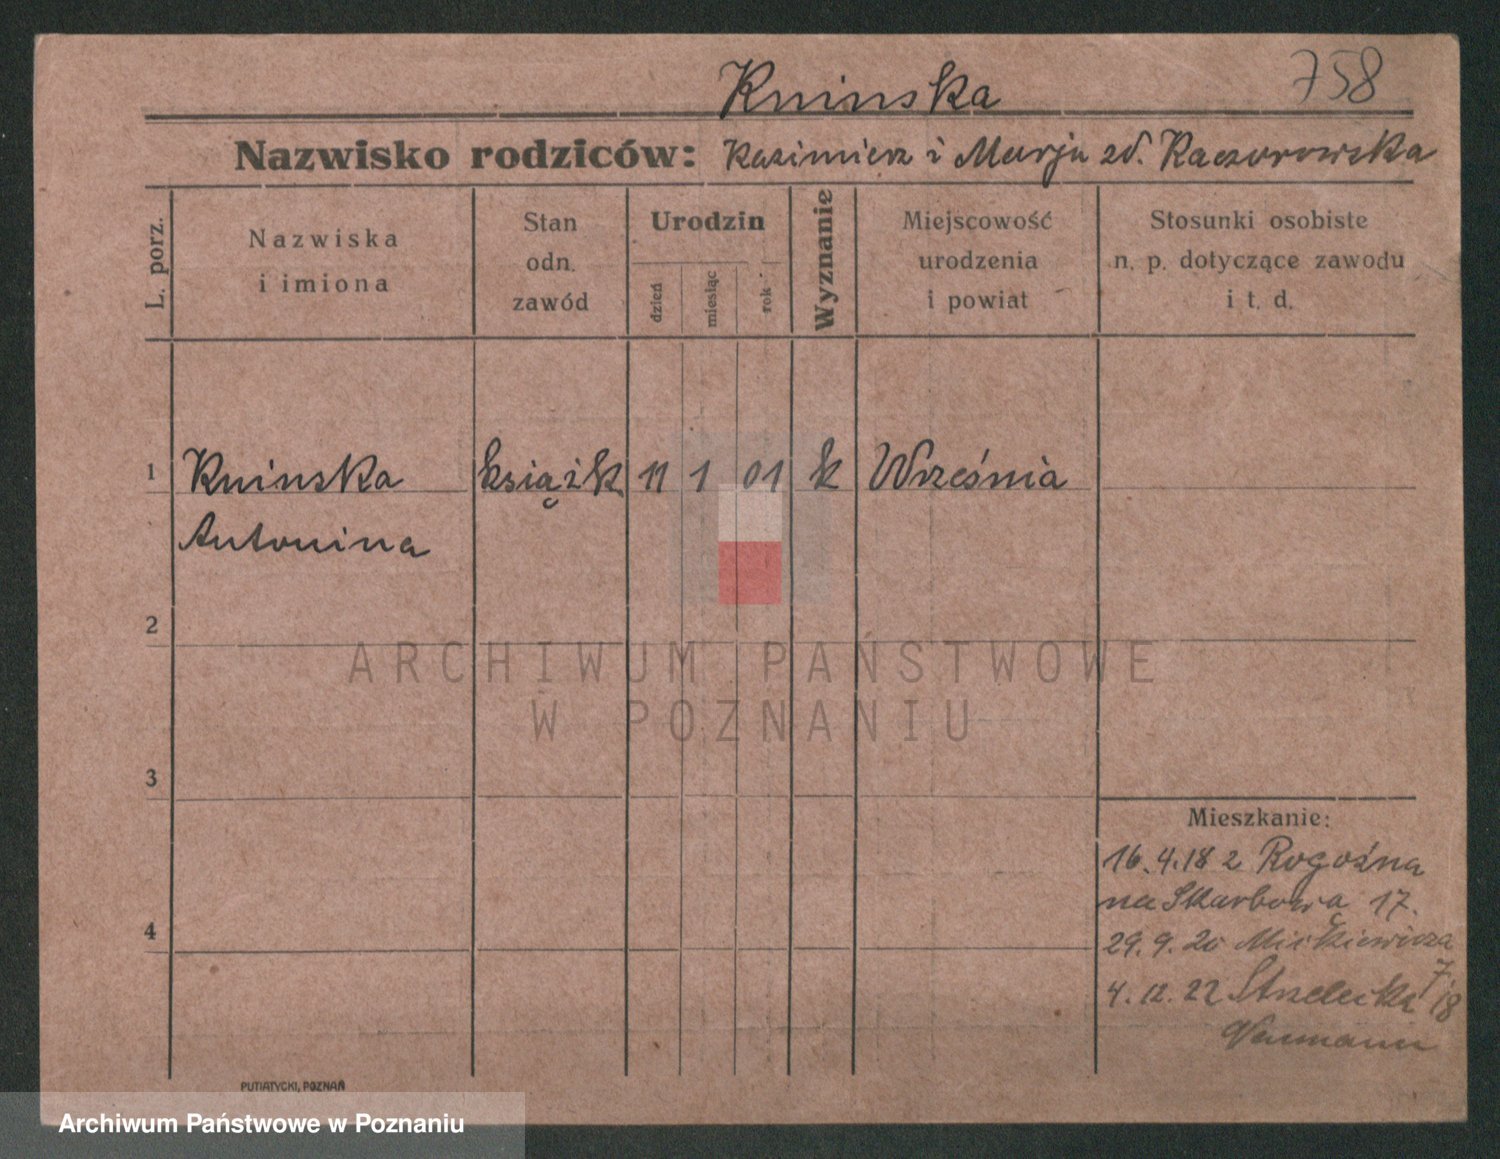 Kninska 758
Nazwisko rodziców: Kazimierz i Marja zd. Kaczorowska
L. porz.
Nazwiska
i imiona
Stan
odn.
zawód
Urodzin
dzień
miesiąc
rok
Wyznanie
Miejscowość
urodzenia
i powiat
Stosunki osobiste
n. p. dotyczące zawodu
i t. d.
1 Kninska książk 11 1 01 k Września
Antonina
2
ARCHIWUM PAŃSTWOWE
W POZNANIU
3
Mieszkanie:
16.4.18 z Rogoźna
na Skarbowa 17.
4
29.9.20 Mickiewicza
7
4.12.22 Strzelecka 18
Neumann
PUTIATYCKI, POZNAŃ
Archiwum Państwowe w Poznaniu